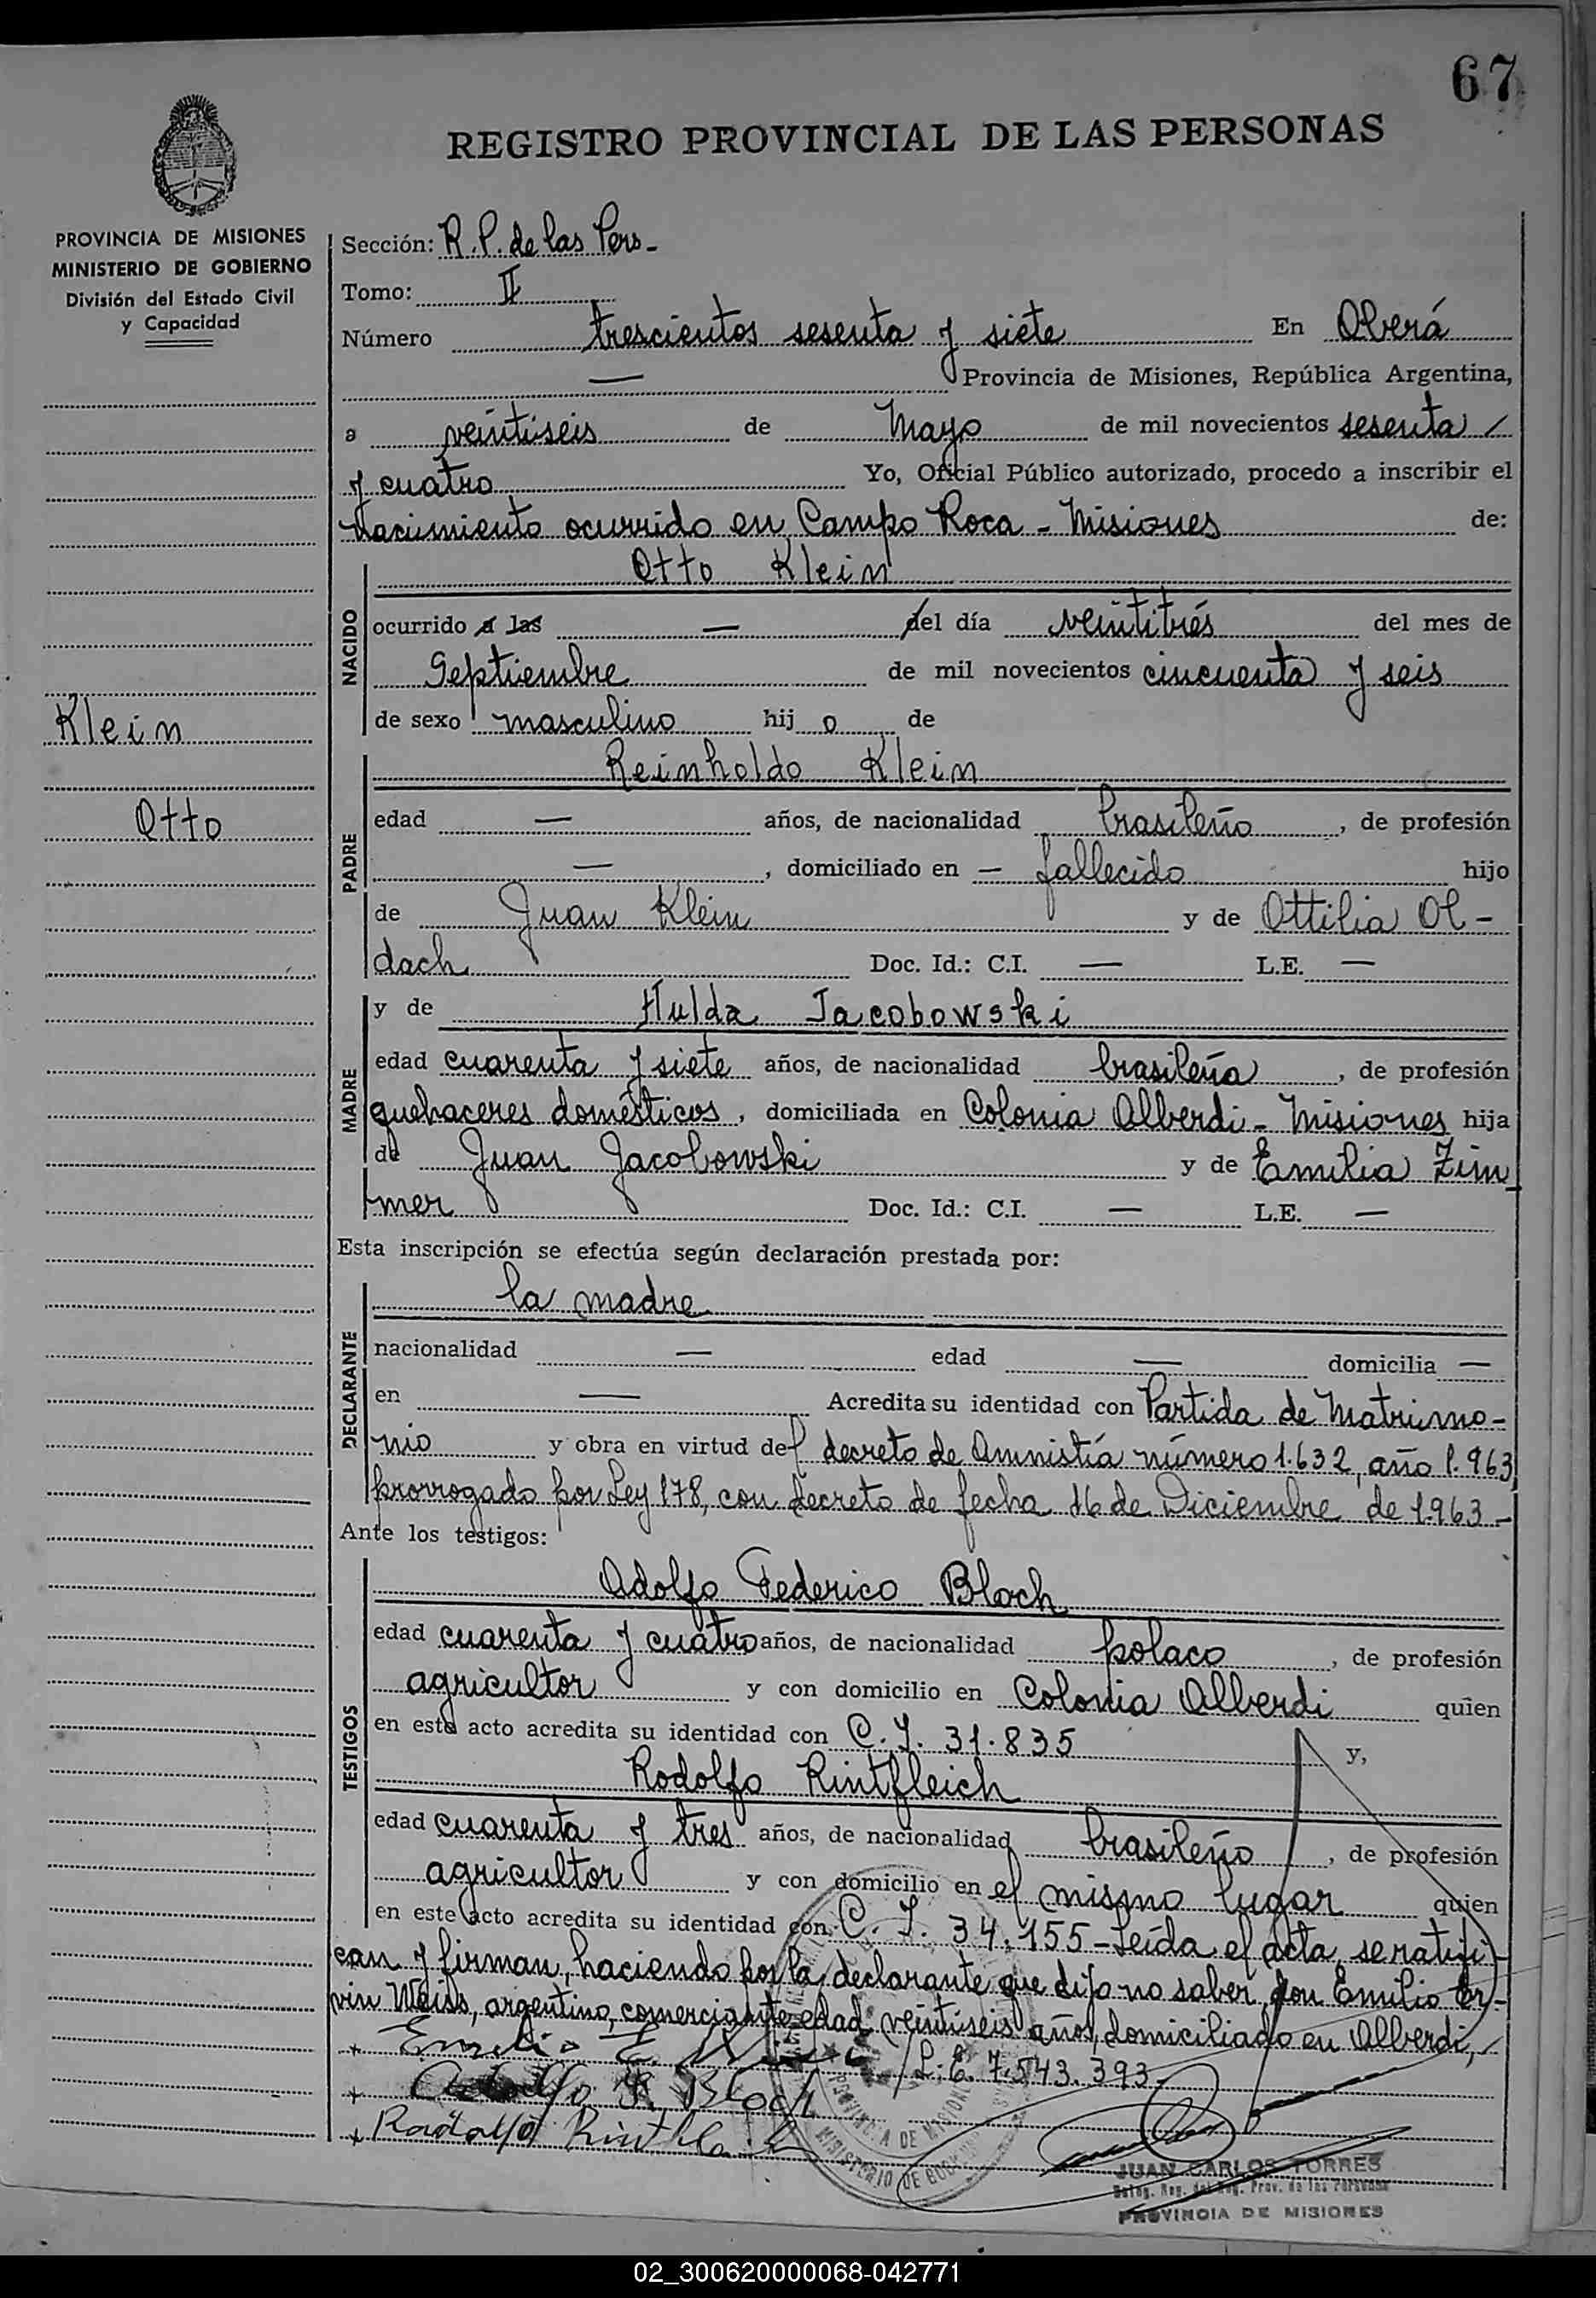 67
REGISTRO PROVINCIAL DE LAS PERSONAS
PROVINCIA DE MISIONES
MINISTERIO DE GOBIERNO
División del Estado Civil
y Capacidad
Klein
Otto
Sección: R.P. de las Pers-
Tomo: II
Número trescientos sesenta y siete En Oberá
— Provincia de Misiones, República Argentina,
a veintiseis de Mayo de mil novecientos sesenta /
y cuatro Yo, Oficial Público autorizado, procedo a inscribir el
nacimiento ocurrido en Campo Roca - Misiones de:
NACIDO
Otto Klein
ocurrido a las — del día veintitrés del mes de
Septiembre de mil novecientos cincuenta y seis
de sexo masculino hij o de
PADRE
Reinholdo Klein
edad — años, de nacionalidad brasileño, de profesión
—, domiciliado en — fallecido hijo
de Juan Klein y de Ottilia Ol-
dach Doc. Id.: C.I. — L.E. —
MADRE
y de Hulda Jacobowski
edad cuarenta y siete años, de nacionalidad brasileña, de profesión
quehaceres domésticos, domiciliada en Colonia Alberdi - Misiones hija
de Juan Jacobowski y de Emilia Zim-
mer Doc. Id.: C.I. — L.E. —
Esta inscripción se efectúa según declaración prestada por:
DECLARANTE
la madre
nacionalidad — edad — domicilia —
en — Acredita su identidad con Partida de Matrimo-
nio y obra en virtud del decreto de Amnistía número 1.632, año 1.963,
prorrogado por Ley 178, con decreto de fecha 16 de Diciembre de 1.963-
Ante los testigos:
TESTIGOS
Adolfo Federico Bloch
edad cuarenta y cuatro años, de nacionalidad polaco, de profesión
agricultor y con domicilio en Colonia Alberdi quien
en este acto acredita su identidad con C.I. 31.835 y,
Rodolfo Rintfleich
edad cuarenta y tres años, de nacionalidad brasileño, de profesión
agricultor y con domicilio en el mismo lugar quien
en este acto acredita su identidad con C.I. 34.155 - Leída el acta, se ratifi-
can y firman, haciendo por la declarante que dijo no saber, don Emilio Er-
vin Weiss, argentino, comerciante edad veintiseis años, domiciliado en Alberdi, /
+ Emilio E. /L.E. 7.543.393-
+ Adolfo Bloch
+ Rodolfo
PROVINCIA DE MISIONES
MINISTERIO DE
JUAN CARLOS TORRES
Prov. de las Personas
PROVINCIA DE MISIONES
02_300620000068-042771